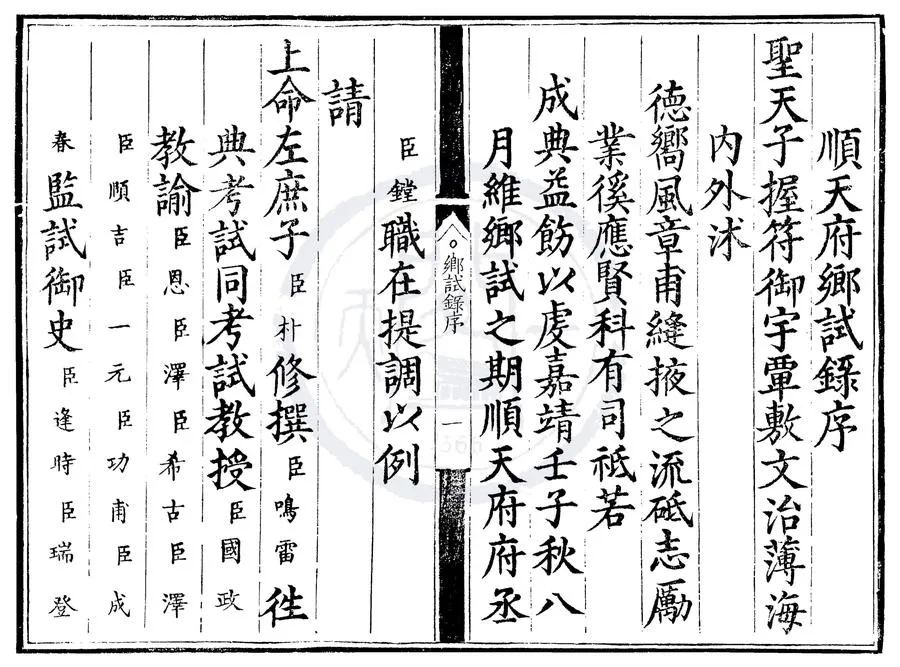 順天府鄉試錄序
聖天子握符御宇覃敷文治薄海
內外沐
德嚮風章甫縫掖之流砥志厲
業徯應賢科有司祗若
成典益飭以虔嘉靖壬子秋八
月維鄉試之期順天府府丞
鄉試錄序 一
臣鏜職在提調以例
請
上命左庶子臣朴修撰臣鳴雷往
典考試同考試教授臣國政
教諭臣恩臣澤臣希古臣澤
臣順吉臣一元臣功甫臣成
春監試御史臣逢時臣瑞登